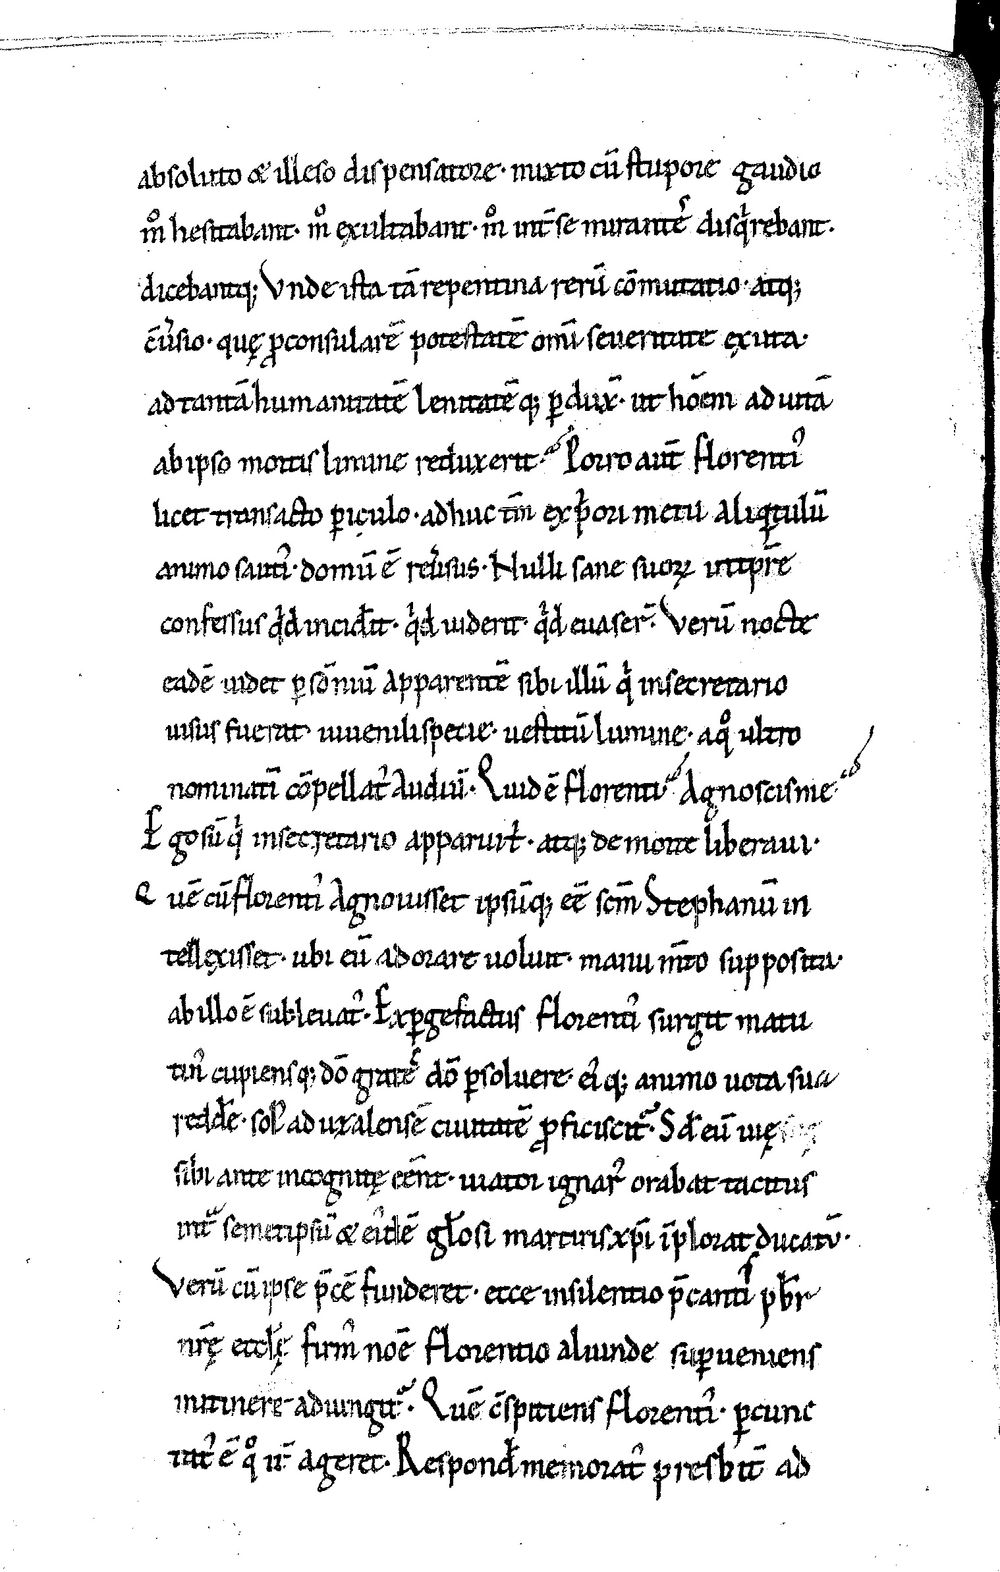 absoluto & illeso dispensatore· mixto cū stupore gaudio
m̊ hesitabant· m̊ exultabant· m̊ int̄ se mirantes disqͥrebant·
dicebantq; Vnde ista tā repentina rerū cōmutatio· atq;
c̄uersio· quę ꝓconsularē potestatē omī seueritate exuta·
ad tantā humanitatē lenitatēq; ꝑdux̄· ut hoēm ad uitā
ab ipso mortis limine reduxerit· Porro aut̄ florentiꝰ
licet transacto ꝑiculo· adhuc tm̄ ex pͥori metu aliqͣntulū
animo sautiꝰ· domū ē reuͥsus· Nulli sane suoꝝ int̄p̄re
confessus qͥd inciderit· qͥd uiderit· qͥd euaser̄· Verū nocte
eadē uidet ꝑ sōniū apparentē sibi illū qͥ insecretario
uisus fuerat iuuenili specie· uestitū lumine· a qͦ ultro
nominatī cōpellatꝰ audiuī· Quid ē florenti Agnoscis me
Ego sū qͥ insecretario apparui t̵· atq; de morte liberaui·
Quē cū florentiꝰ Agnouisset ipsūq; eē scm̄ Stephanū in
tellexisset· ubi eū adorare uoluit· manu m̄to supposita·
ab illo ē subleuatꝰ· Exꝑgefactus florentiꝰ surgit matu
tinꝰ cupiensq; dō grates dō ꝑsoluere· eiꝰq; animo uota sua
redd̵e· sol ad uxalensē ciuitatē ꝓficiscit̃· Sd̵ eū uię
sibi ante incognitę cēnt· uiator ignarꝰ orabat tacitus
int̃ semetipsū & eiꝰdē gl̵osi martiris xp̄i īplorat ducatū·
Verū cū ipse p̄cē funderet· ecce in silentio p̄canti pb̄r
nr̄ę eccl̵ę firmꝰ noē florentio aliunde suꝑueniens
initinere adiungit̃· Quē c̄spitiens florentiꝰ· ꝑcunc
tatꝰ ē qͦ it̄ ageret· Respond̵ memoratꝰ presbit̄ ad